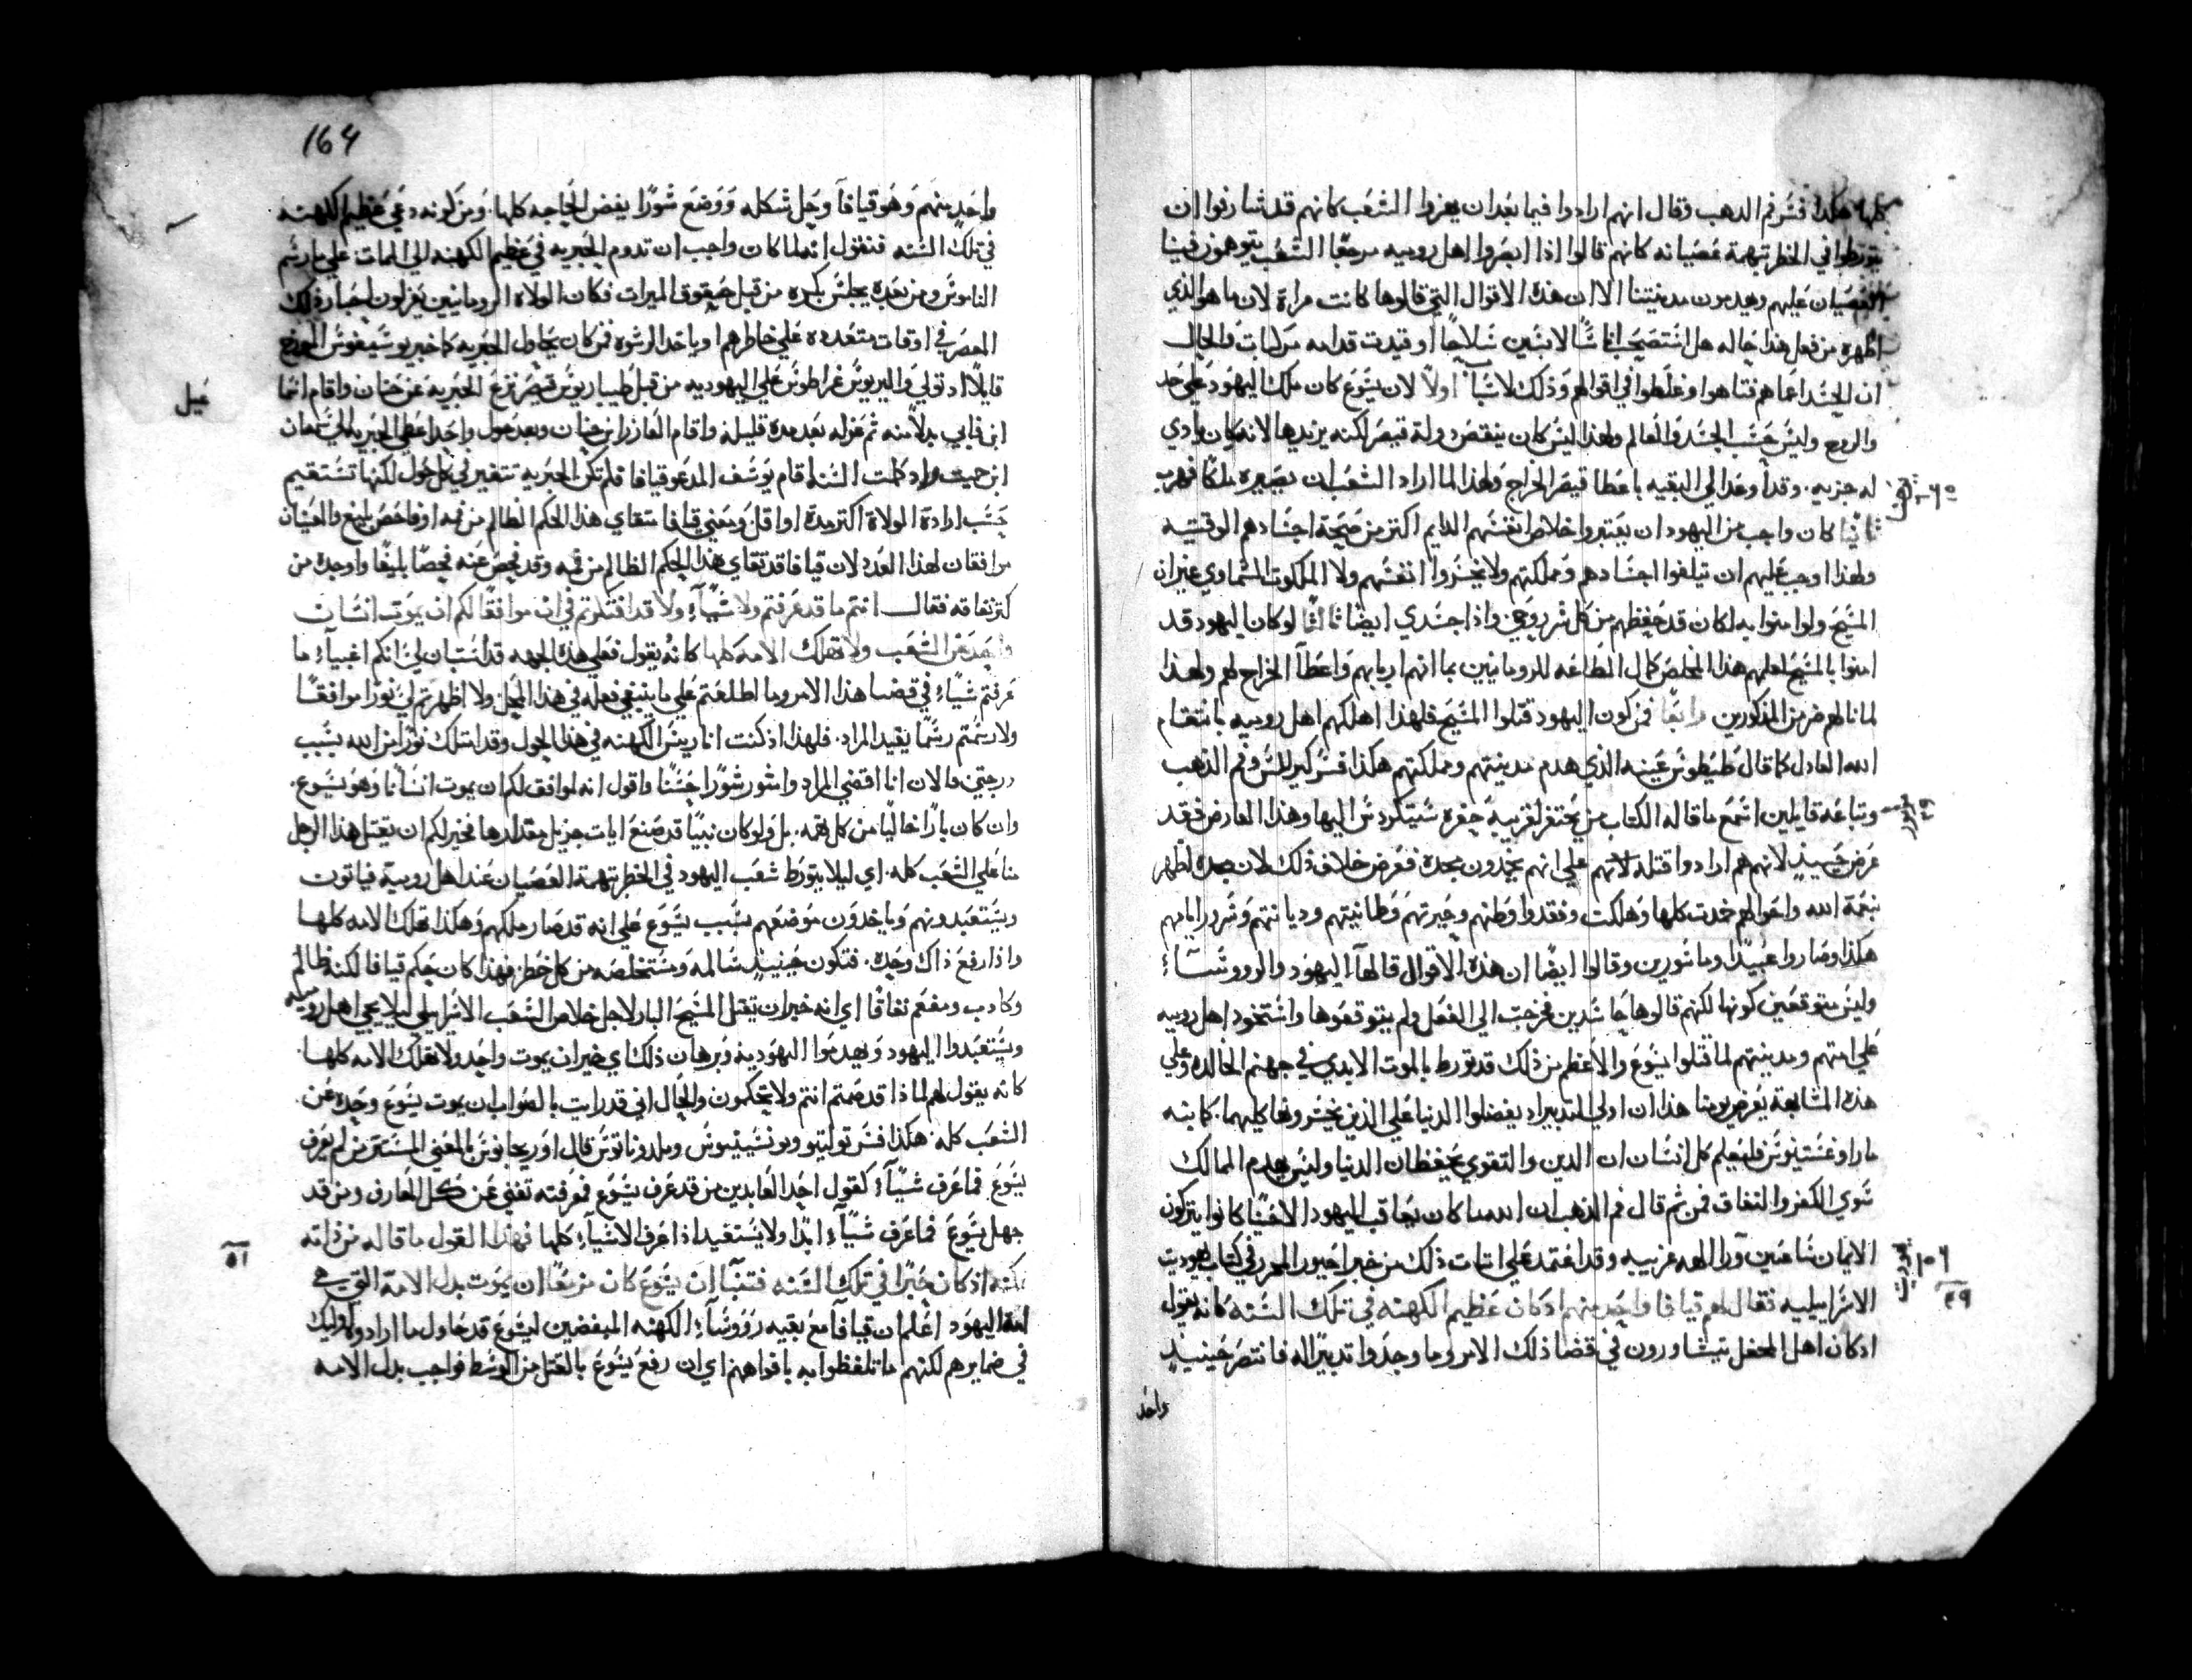 كلها. هكذا فسر فم الدهب وقال انهم ارادوا فيما بعد ان يعزوا الشعب كانهم قد شارفوا ان
يتورطوا في الخطر بتهمة عصيانه كانهم قالوا اذا ابصروا اهل روميه مرجعا الشعب يتوهمون فينا
العصيان عليهم ويهدمون مدينتنا الا ان هذه الاقوال التي قالوها كانت مراة لان ما هو الذي
اظهره من فعل هذا حاله هل استصحب اناسا لابسين سلاحا او قيدت قدامه مركبات والحال
ان الحسد اعماهم فتاهوا وغلطوا في اقوالهم وذلك لاسباب اولا لان يسوع كان ملك اليهود علي حد
والروح وليس حسب الجسد والعالم ولهذا ليس كان ينقص دولة قيصر لكنه يزيدها لانه كان يادي
له جزيه. وقد اوعد الي البقيه باعطا قيصر الخراج ولهذا لما اراد الشعب ان يصيره ملكا فهرب
ثانيا كان واجب من اليهود ان يعتبروا خلاص انفسهم الدايم اكتر من صحة اجسادهم الوقتيه
ولهذا وجب عليهم ان يتلفوا اجسادهم ومملكتهم ولا يخسروا انفسهم ولا الملكوت السماوي غير ان
المسيح ولو امنوا به لكان قد حفظهم من كل شر روحي واذا جسدي ايضا ثالثا لو كان اليهود قد
امنوا بالمسيح لعلمهم هذا المخلص كمال الطاعه للرومانيين بما انهم اربابهم واعطا الخراج لهم ولهذا
لما نالهم ضر من المذكورين رابعا فمن كون اليهود قتلوا المسيح فلهذا اهلكهم اهل روميه بانتقام
الله العادل كما قال طيطوس عينه الذي هدم مدينتهم ومملكتهم هكذا فسر كيرللس وفم الذهب
وتباعه قايلين اسمع ما قاله الكتاب من يحتفر لقريبه حفره سيتكردس اليها وهذا العارض فقد
عرض حينيذ لانهم هم ارادوا قتله لانهم علي انهم يخمدون مجده فعرض خلاف ذلك لان مجده اظهر
نعمة الله واموالهم خدت كلها وهلكت وفقدوا وطنهم وحبرتهم وطمانيتهم وديانتهم وسرور ايامهم
هكذا وصاروا عبيدا ومأسورين وقالوا ايضا ان هذه الاقوال قالها اليهود والرووساء
وليس متوقعين كونها لكنهم قالوها حاسدين فخرجت الي الفعل ولم يتوقعوها واستحوذ اهل روميه
علي امتهم ومدينتهم لما قتلوا يسوع والاعظم من ذلك قد تورط بالموت الابدي في جهنم الخالده وعلي
هذه المشابهة يعرض يومنا هذا ان اولي التدبير اد يفضلوا الدنيا علي الدين يخسرونها كليهما. كما نبه
مار اوغسطينوس فليعلم كل انسان ان الدين والتقوي يحفظان الدنيا وليس يهدم الممالك
سوي الكفر والنفاق فمن ثم قال فم الذهب ان الله ما كان يعاقب اليهود الا حينما كانوا يتركون
الايمان ساعين ورا الهه غريبه وقد اعتمد علي اتبات ذلك من خبر احيور المحرر في كتاب يهوديت
الاسراييليه فقال لهم قيافا واحد منهم ادكان عظيم الكهنه في تلك السنه كانه يقول
ادكان اهل المحفل يتشاورون في قضا ذلك الامر وما وجدوا تدبيرا له فانتصر حينيذ
واحد
164
واحد منهم وهو قيافا وحل شكله ووضع شورا يفض الحاجه كلها. ومن كونه دعي عظيم الكهنه
في تلك السنه فنقول انه لما كان واجب ان تدوم الحبريه في عظيم الكهنه الي الممات علي ما رسم
الناموس ومن بعده يجلس بكره من قبل حقوق الميرات فكان الولاه الرومانيين يعزلون احبار ذلك
العصر في اوقات متعدده علي خاطرهم او ياخد الرشوه ممن كان يحاول الحبريه كما خبر يوسيفوس المورخ
قايلا اد تولي واليريوس غراطوس علي اليهوديه من قبل طيباريوس قيصر نزع الحبريه عن حنان واقام اسما
عيل
ابن فابي بدلا منه ثم عزله بعد مدة قليله واقام العازر ابن حنان وبعد حول واحد اعطي الحبريه الي سمعان
ابن حميت واد كملت السنه اقام يوسف المدعو قيافا فلم تكن الحبريه تتغير في كل حول لكنها تستقيم
حسب ارادة الولاة اكتر مدة او اقل ومعني قيافا متقاي هذا الحكم الظالم من فمه او فاحص بليغ والمعنيان
موافقان لهذا العدد لان قيافا قد تقاي هذا الحكم الظالم من فمه وقد فحص عنه فحصا بليغا واوجده من
كتر نفاقه فقال انتم ما قد عرفتم ولا شياء ولا قد افتكرتم في ان موافقا لكم ان يموت انسان
واحد عن الشعب ولا تهلك الامه كلها كانه يقول فعلي هذه الجهه قد استبان لي انكم اغبياء ما
عرفتم شياء في قضا هذا الامر وما اطلعتم علي ما ينبغي فعله في هذا المحل ولا اظهرتم لي شورا موافقا
ولا رسمتم رسما يفيد المراد. فلهذا اذ كنت انا رييس الكهنه في هذا الحول وقد امتلك نورا من الله بسبب
درجتي فالان انا اقضي المراد واشور شورا حسنا واقول انه لموافق لكم ان يموت انسانا وهو يسوع.
وان كان بارا خاليا من كل تهمه. بل ولو كان نبيا قد صنع ايات جزيل مقدارها فخير لكم ان يقتل هذا الرجل
منا علي الشعب كله. اي ليلا يتورط شعب اليهود في الخطر بتهمة العصيان عند اهل روميه فياتون
ويستعبدونهم وياخدون موضعهم بسبب يسوع علي انه قد صار ملكهم وهكذا تهلك الامه كلها
واذا رفع ذاك وحده. فتكون حينيذ سالمه ومستخلصه من كل خطر فهذا كان حكم قيافا لكنه ظالم
وكادب ومفعم نفاقا اي انه خير ان يقتل المسيح البار لاجل خلاص الشعب الاسرايلي ليلا يجي اهل روميه
ويستعبدوا اليهود ويهدموا اليهوديه وبرهان ذلك اي خير ان يموت واحد ولا تهلك الامه كلها.
كانه يقول لهم لماذا قد صمتم انتم ولا تحكمون والحال اني قد رايت بالصواب ان يموت يسوع وحده عن
الشعب كله. هكذا فسر توليتو ويونسينيوس وملدوناتوس قال اوريجانوس بالمعني المستتر من لم يعرف
يسوع فما عرف شياء كقول احد العابدين من قد عرف يسوع فمعرفته تغني عن كل المعارف ومن قد
جهل يسوع فما عرف شياء ابدا ولا يستفيد اذا عرف الاشياء كلها فهذا القول ما قاله من ذاته
اه
لكنه اذ كان حبرا في تلك السنه فتنبا ان يسوع كان مزمعا ان يموت بدل الامة التي هي
امة اليهود اعلم ان قيافا مع بقيه رووساء الكهنه المبغضين ليسوع قد حاول ما ارادوه اوليك
في ضمايرهم لكنهم ما تلفظوا به بافواههم اي ان رفع يسوع بالقتل من الوسط فواجب بدل الامه